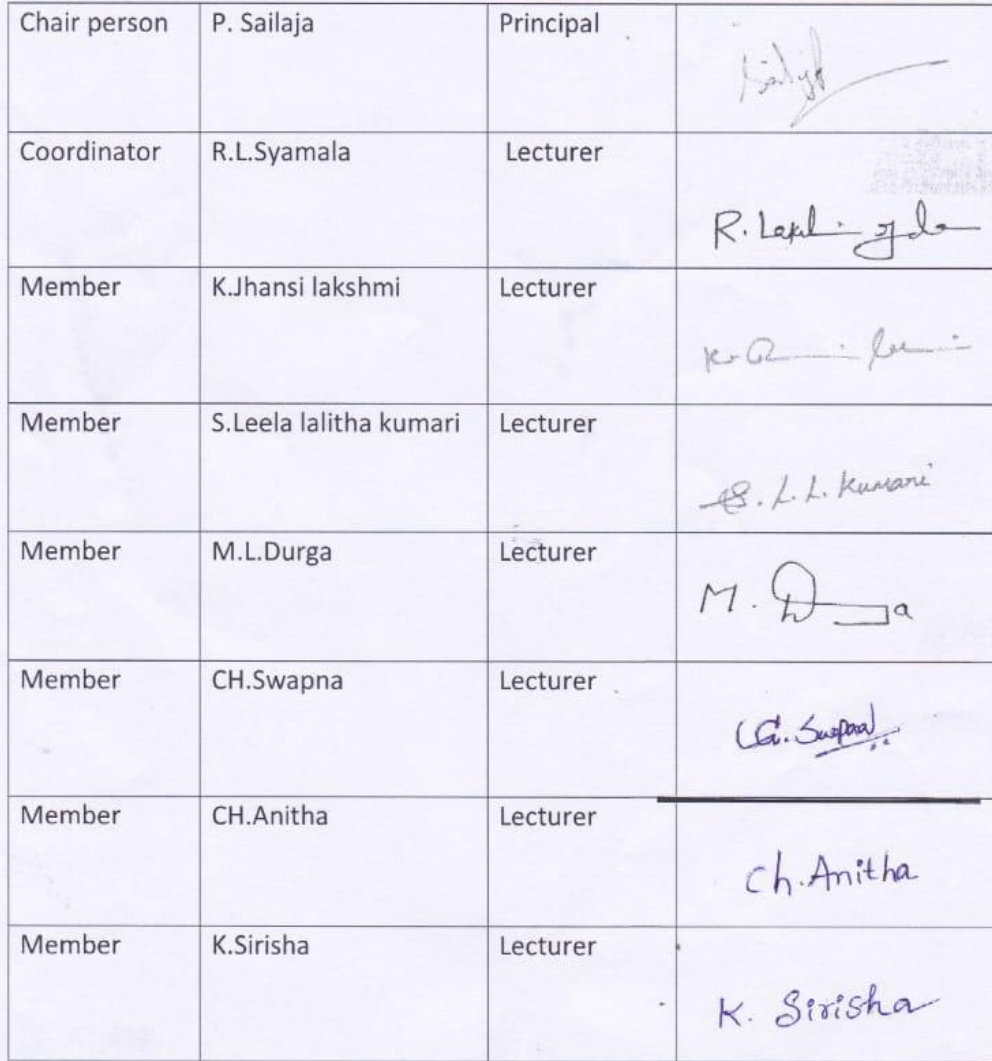 Chair person P. Sailaja Principal
Coordinator R.L.Syamala Lecturer
R.
Member K.Jhansi lakshmi Lecturer
K.
Member S.Leela lalitha kumari Lecturer
S. L. L. Kumari
Member M.L.Durga Lecturer
M. Durga
Member CH.Swapna Lecturer
Ch. Swapna
Member CH.Anitha Lecturer
Ch. Anitha
Member K.Sirisha Lecturer
K. Sirisha